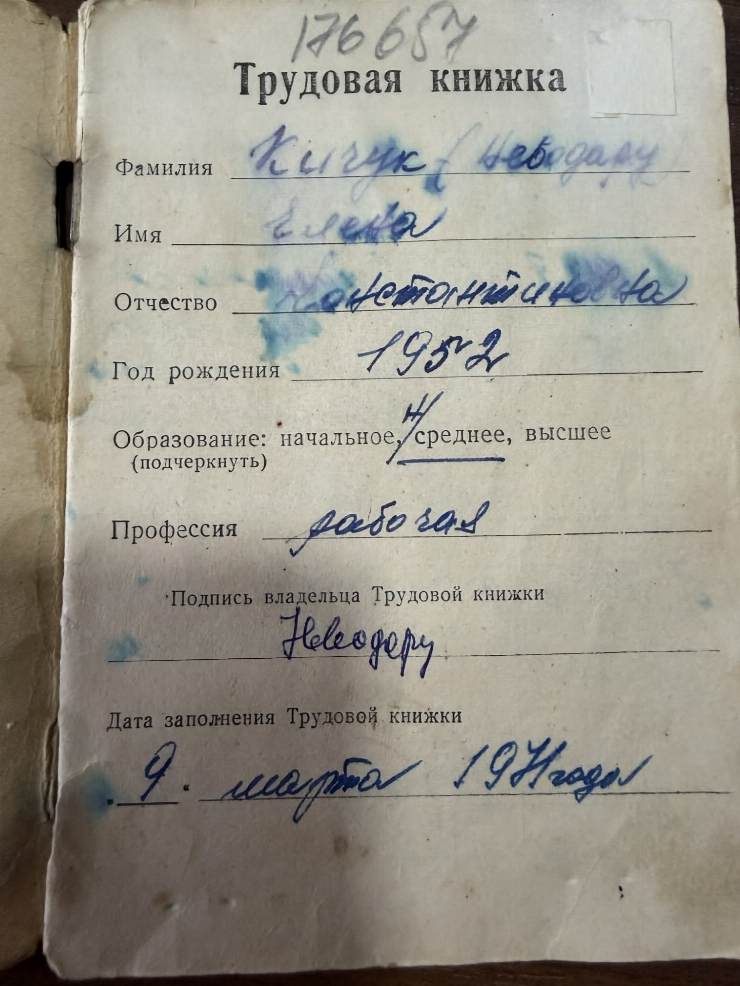 176657
Трудовая книжка
Фамилия Кичук (Неводару)
Имя Елена
Отчество Константиновна
Год рождения 1952
Образование: начальное, н/среднее, высшее
(подчеркнуть)
Профессия рабочая
Подпись владельца Трудовой книжки
Неводару
Дата заполнения Трудовой книжки
9. марта 1971 года